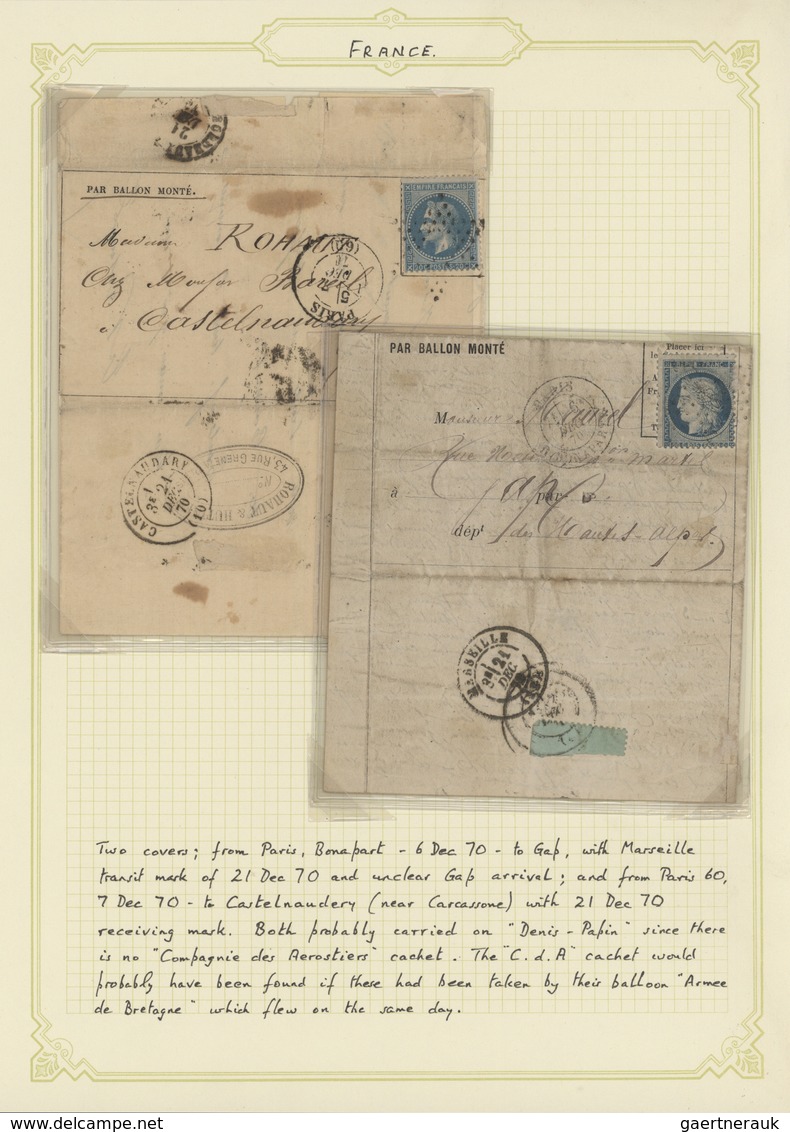 FRANCE.
PAR BALLON MONTÉ.
EMPIRE FRANÇAIS
Madame ROHAUT
Chez Monsieur
à Castelnaudary
PARIS
(60)
5
7
DEC
CASTELNAUDARY
3E
21
DEC
70
(10)
ROHAUT & HU
45, RUE GRENE
PAR BALLON MONTÉ
Placer ici
REPUB. FRANC.
PARIS
Monsieur
à Gap par
dépt des Hautes-Alpes
MARSEILLE
3E
21
DEC
Two covers; from Paris, Bonapart - 6 Dec 70 - to Gap, with Marseille
transit mark of 21 Dec 70 and unclear Gap arrival; and from Paris 60,
7 Dec 70 - to Castelnaudery (near Carcassone) with 21 Dec 70
receiving mark. Both probably carried on "Denis-Papin" since there
is no "Compagnie des Aerostiers" cachet. The "C.d.A" cachet would
probably have been found if these had been taken by their balloon "Armee
de Bretagne" which flew on the same day.
gaertnerauk